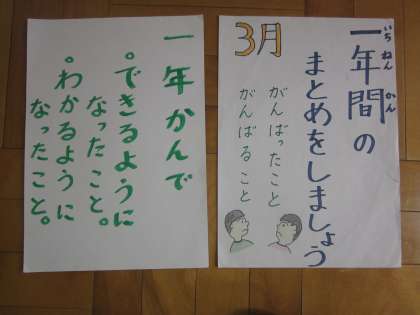 いちねんかん
一年間の
まとめをしましょう
3月
がんばったこと
がんばること
一年かんで
。できるように
なったこと。
。わかるように
なったこと。